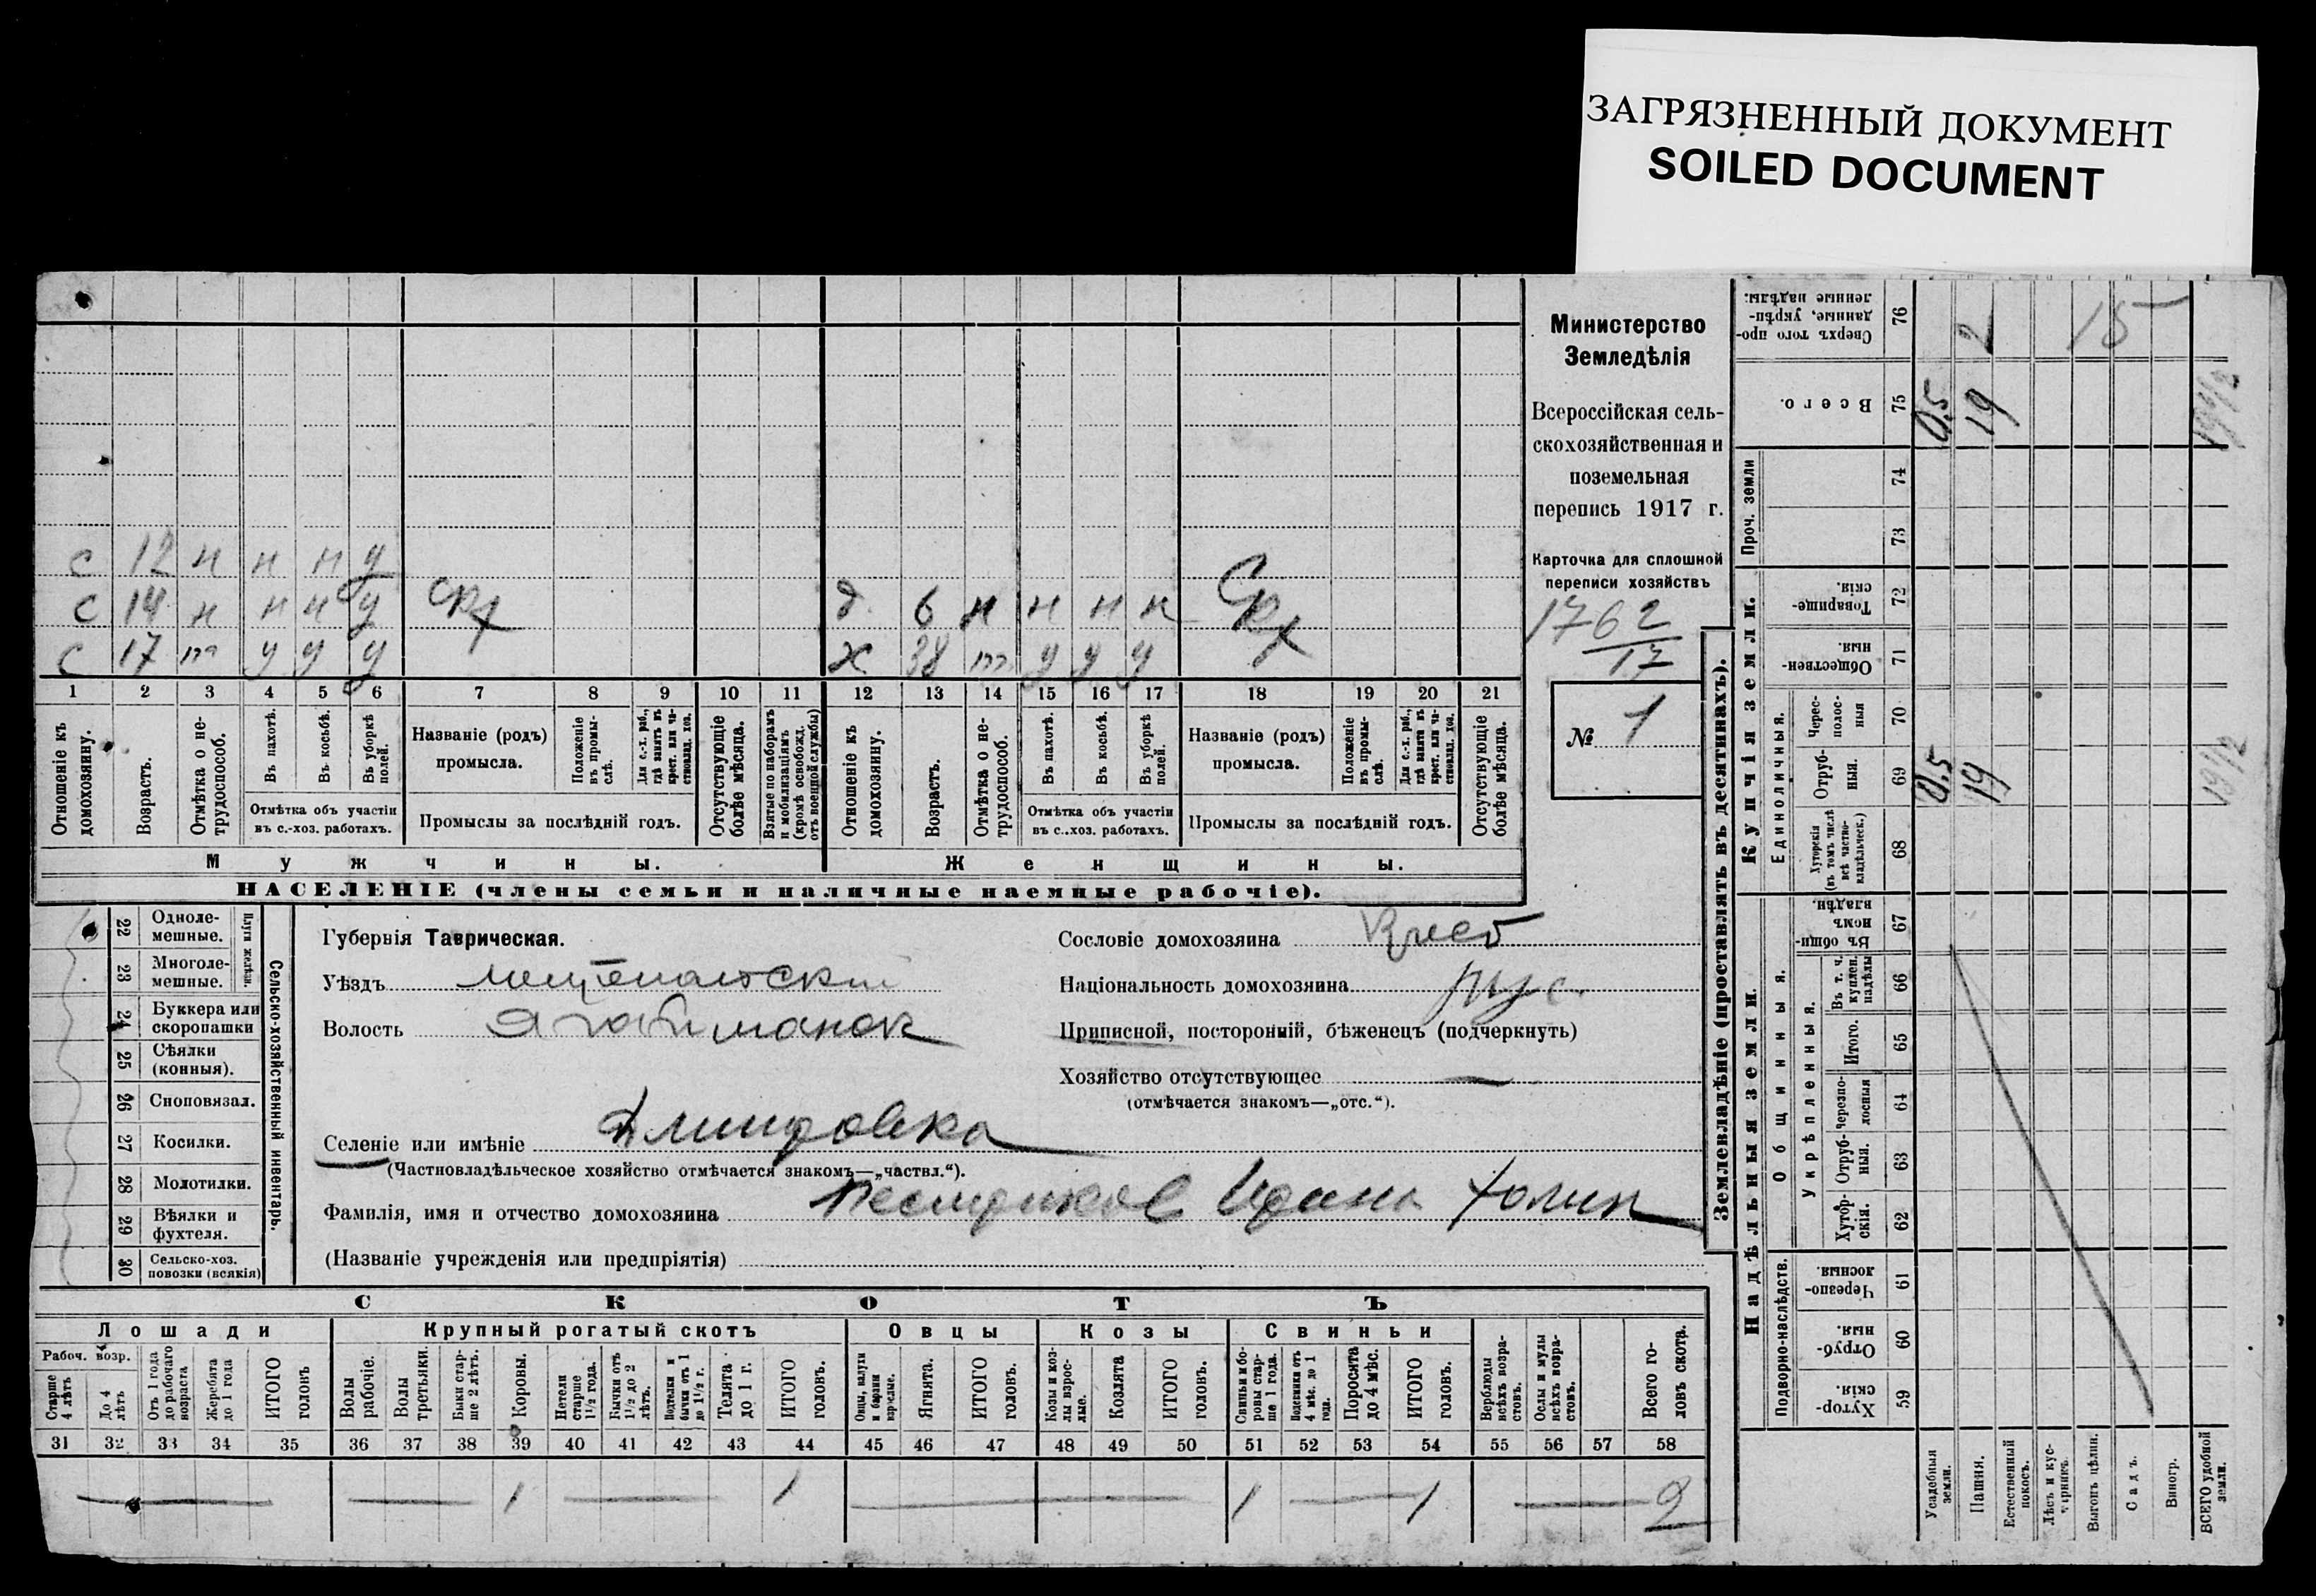 ЗАГРЯЗНЕННЫЙ ДОКУМЕНТ
SOILED DOCUMENT
Министерство
Земледѣлія
Всероссійская сель-
скохозяйственная и
поземельная
перепись 1917 г.
Карточка для сплошной
переписи хозяйствъ
1762
17
№ 1
с 12 н н н у
с 14 н н н у скх д 6 н н н н Скх
с 17 т у у у ж 38 т у у у
1 2 3 4 5 6 7 8 9 10 11 12 13 14 15 16 17 18 19 20 21
Отношеніе къ домохозяину.
Возрастъ.
Отмѣтка о не-трудоспособ.
Въ пахотѣ.
Въ косьбѣ.
Въ уборкѣ полей.
Отмѣтка объ участіи
въ с.-хоз. работахъ.
Названіе (родъ)
промысла.
Положеніе въ промы-слѣ.
Для с.-х. раб., гдѣ занятъ въ крест. или ча-стновлад. хоз.
Промыслы за послѣдній годъ.
Отсутствующіе болѣе мѣсяца.
Взятые по наборамъ и мобилизаціямъ (кромѣ освобожд. отъ военной службы)
Отношеніе къ домохозяину.
Возрастъ.
Отмѣтка о не-трудоспособ.
Въ пахотѣ.
Въ косьбѣ.
Въ уборкѣ полей.
Отмѣтка объ участіи
въ с.-хоз. работахъ.
Названіе (родъ)
промысла.
Положеніе въ промы-слѣ.
Для с.-х. раб., гдѣ занята въ крест. или ча-стновлад. хоз.
Промыслы за послѣдній годъ.
Отсутствующіе болѣе мѣсяца.
Мужчины.
Женщины.
НАСЕЛЕНІЕ (члены семьи и наличные наемные рабочіе).
22 Одноле-мешные.
23 Многоле-мешные.
Плуги желѣзн.
24 Буккера или скоропашки
25 Сѣялки (конныя).
26 Сноповязал.
27 Косилки.
28 Молотилки.
29 Вѣялки и фухтеля.
30 Сельско-хоз. повозки (всякія)
Сельско-хозяйственный инвентарь.
Губернія Таврическая.
Уѣздъ
Волость
Селеніе или имѣніе
(Частновладѣльческое хозяйство отмѣчается знакомъ—„частвл.“).
Фамилія, имя и отчество домохозяина
(Названіе учрежденія или предпріятія)
Сословіе домохозяина
Національность домохозяина рус.
Приписной, посторонній, бѣженецъ (подчеркнуть)
Хозяйство отсутствующее —
(отмѣчается знакомъ—„отс.“).
СКОТЪ
Лошади
Крупный рогатый скотъ
Овцы
Козы
Свиньи
Рабоч. возр.
Старше 4 лѣтъ
До 4 лѣтъ
Отъ 1 года до рабочаго возраста
Жеребята до 1 года
ИТОГО головъ
Волы рабочіе.
Волы третьяки.
Быки стар-ше 2 лѣтъ.
Коровы.
Нетели старше 1½ года.
Бычки отъ 1½ до 2 лѣтъ.
Подтелки и бычки отъ 1 до 1½ г.
Телята до 1 г.
ИТОГО головъ.
Овцы, валухи и бараны взрослые.
Ягнята.
ИТОГО головъ.
Козы и коз-лы взрос-лые.
Козлята
ИТОГО головъ.
Свиньи и бо-ровы стар-ше 1 года.
Подсвинки отъ 4 мѣс. до 1 года.
Поросята до 4 мѣс.
ИТОГО головъ.
Верблюды всѣхъ возра-стовъ.
Ослы и мулы всѣхъ возра-стовъ.
Всего го-ловъ скота.
31 32 33 34 35 36 37 38 39 40 41 42 43 44 45 46 47 48 49 50 51 52 53 54 55 56 57 58
1 1 1 1 2
Землевладѣніе (проставлять въ десятинахъ).
Сверхъ того про-данные, укрѣп-ленные надѣлы. 76 2 15
Всего. 75 0,5 19 19½
Проч. земли
74
73
Купчія земли.
Товарище-скія. 72
Обществен-ныя. 71
Единоличныя.
Черес-полос-ныя 70
Отруб-ныя. 69 0,5 19 19½
Хуторскія (въ томъ числѣ всѣ частно-владѣльческ.) 68
Надѣльныя земли
Общинныя.
Въ общи-номъ владѣн. 67
Укрѣпленныя.
Въ т. ч. куплен. надѣлы 66
Итого. 65
Черезпо-лосныя 64
Отруб-ныя. 63
Хутор-скія. 62
Подворно-наслѣдств.
Черезпо-лосныя. 61
Отруб-ныя. 60
Хутор-скія. 59
Усадебныя земли.
Пашня.
Естественный покосъ.
Лѣсъ и кус-тарникъ.
Выгонъ цѣлин.
Садъ.
Виногр.
ВСЕГО удобной земли.